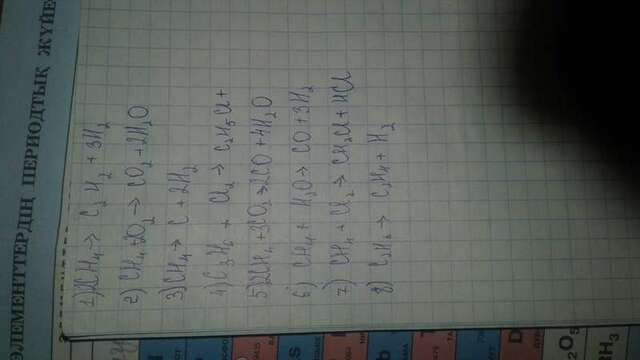 ЭЛЕМЕНТТЕРДІҢ ПЕРИОДТЫҚ ЖҮЙЕ
1) 2CH₄ → C₂H₂ + 3H₂
2) CH₄ + 2O₂ → CO₂ + 2H₂O
3) CH₄ → C + 2H₂
4) C₃H₆ + Cl₂ → C₂H₅Cl +
5) 2CH₄ + 3O₂ → 2CO + 4H₂O
6) CH₄ + H₂O → CO + 3H₂
7) CH₄ + Cl₂ → CH₃Cl + HCl
8) C₂H₆ → C₂H₄ + H₂
O₅
NH₃